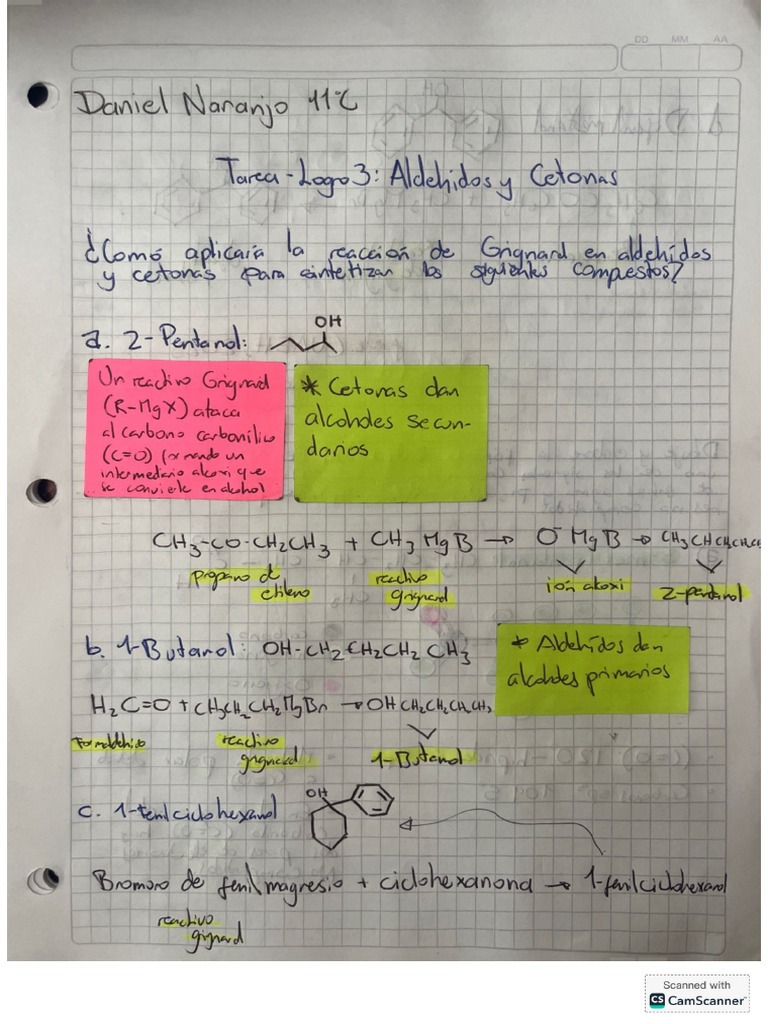 DD MM AA
Daniel Naranjo 11°C
Tarea - Logro 3: Aldehidos y Cetonas
¿Como aplicaria la reacción de Grignard en aldehídos
y cetonas para sintetizar los siguientes compuestos?
a. 2-Pentanol:
OH
Un reactivo Grignard
(R-MgX) ataca
al carbono carbonílico
(C=O) formando un
intermediario alcoxi que
se convierte en alcohol
* Cetonas dan
alcoholes secun-
darios
CH3-CO-CH2CH3 + CH3 MgB → O⁻ MgB → CH3CHCH2CH2CH3
reactivo
grignard
ion alcoxi
2-pentanol
b. 1-Butanol: OH-CH2CH2CH2CH3
* Aldehídos dan
alcoholes primarios
H2C=O + CH3CH2CH2MgBr → OHCH2CH2CH2CH3
Formaldehido
reactivo
grignard
1-Butanol
c. 1-fenilciclohexanol
OH
Bromoro de fenilmagnesio + ciclohexanona → 1-fenilciclohexanol
reactivo
grignard
Scanned with
CS CamScanner